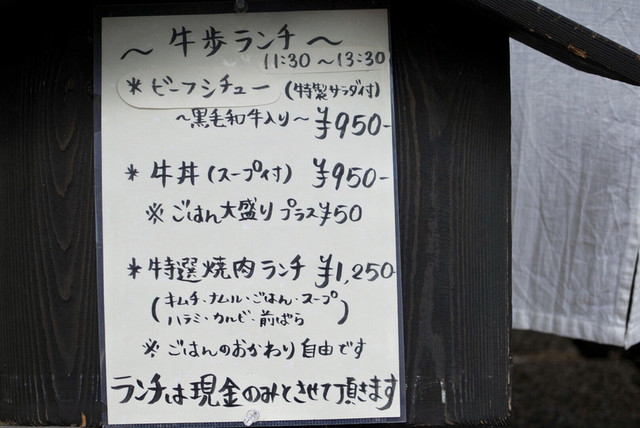 ～ 牛歩ランチ ～
11:30 ～13:30
* ビーフシチュー (特製サラダ付)
～黒毛和牛入り～ ¥950-
* 牛丼 (スープ付) ¥950-
※ ごはん大盛り プラス¥50
* 特選焼肉ランチ ¥1,250-
(キムチ・ナムル・ごはん・スープ
ハラミ・カルビ・前ばら)
※ ごはんのおかわり自由です
ランチは現金のみとさせて頂きます